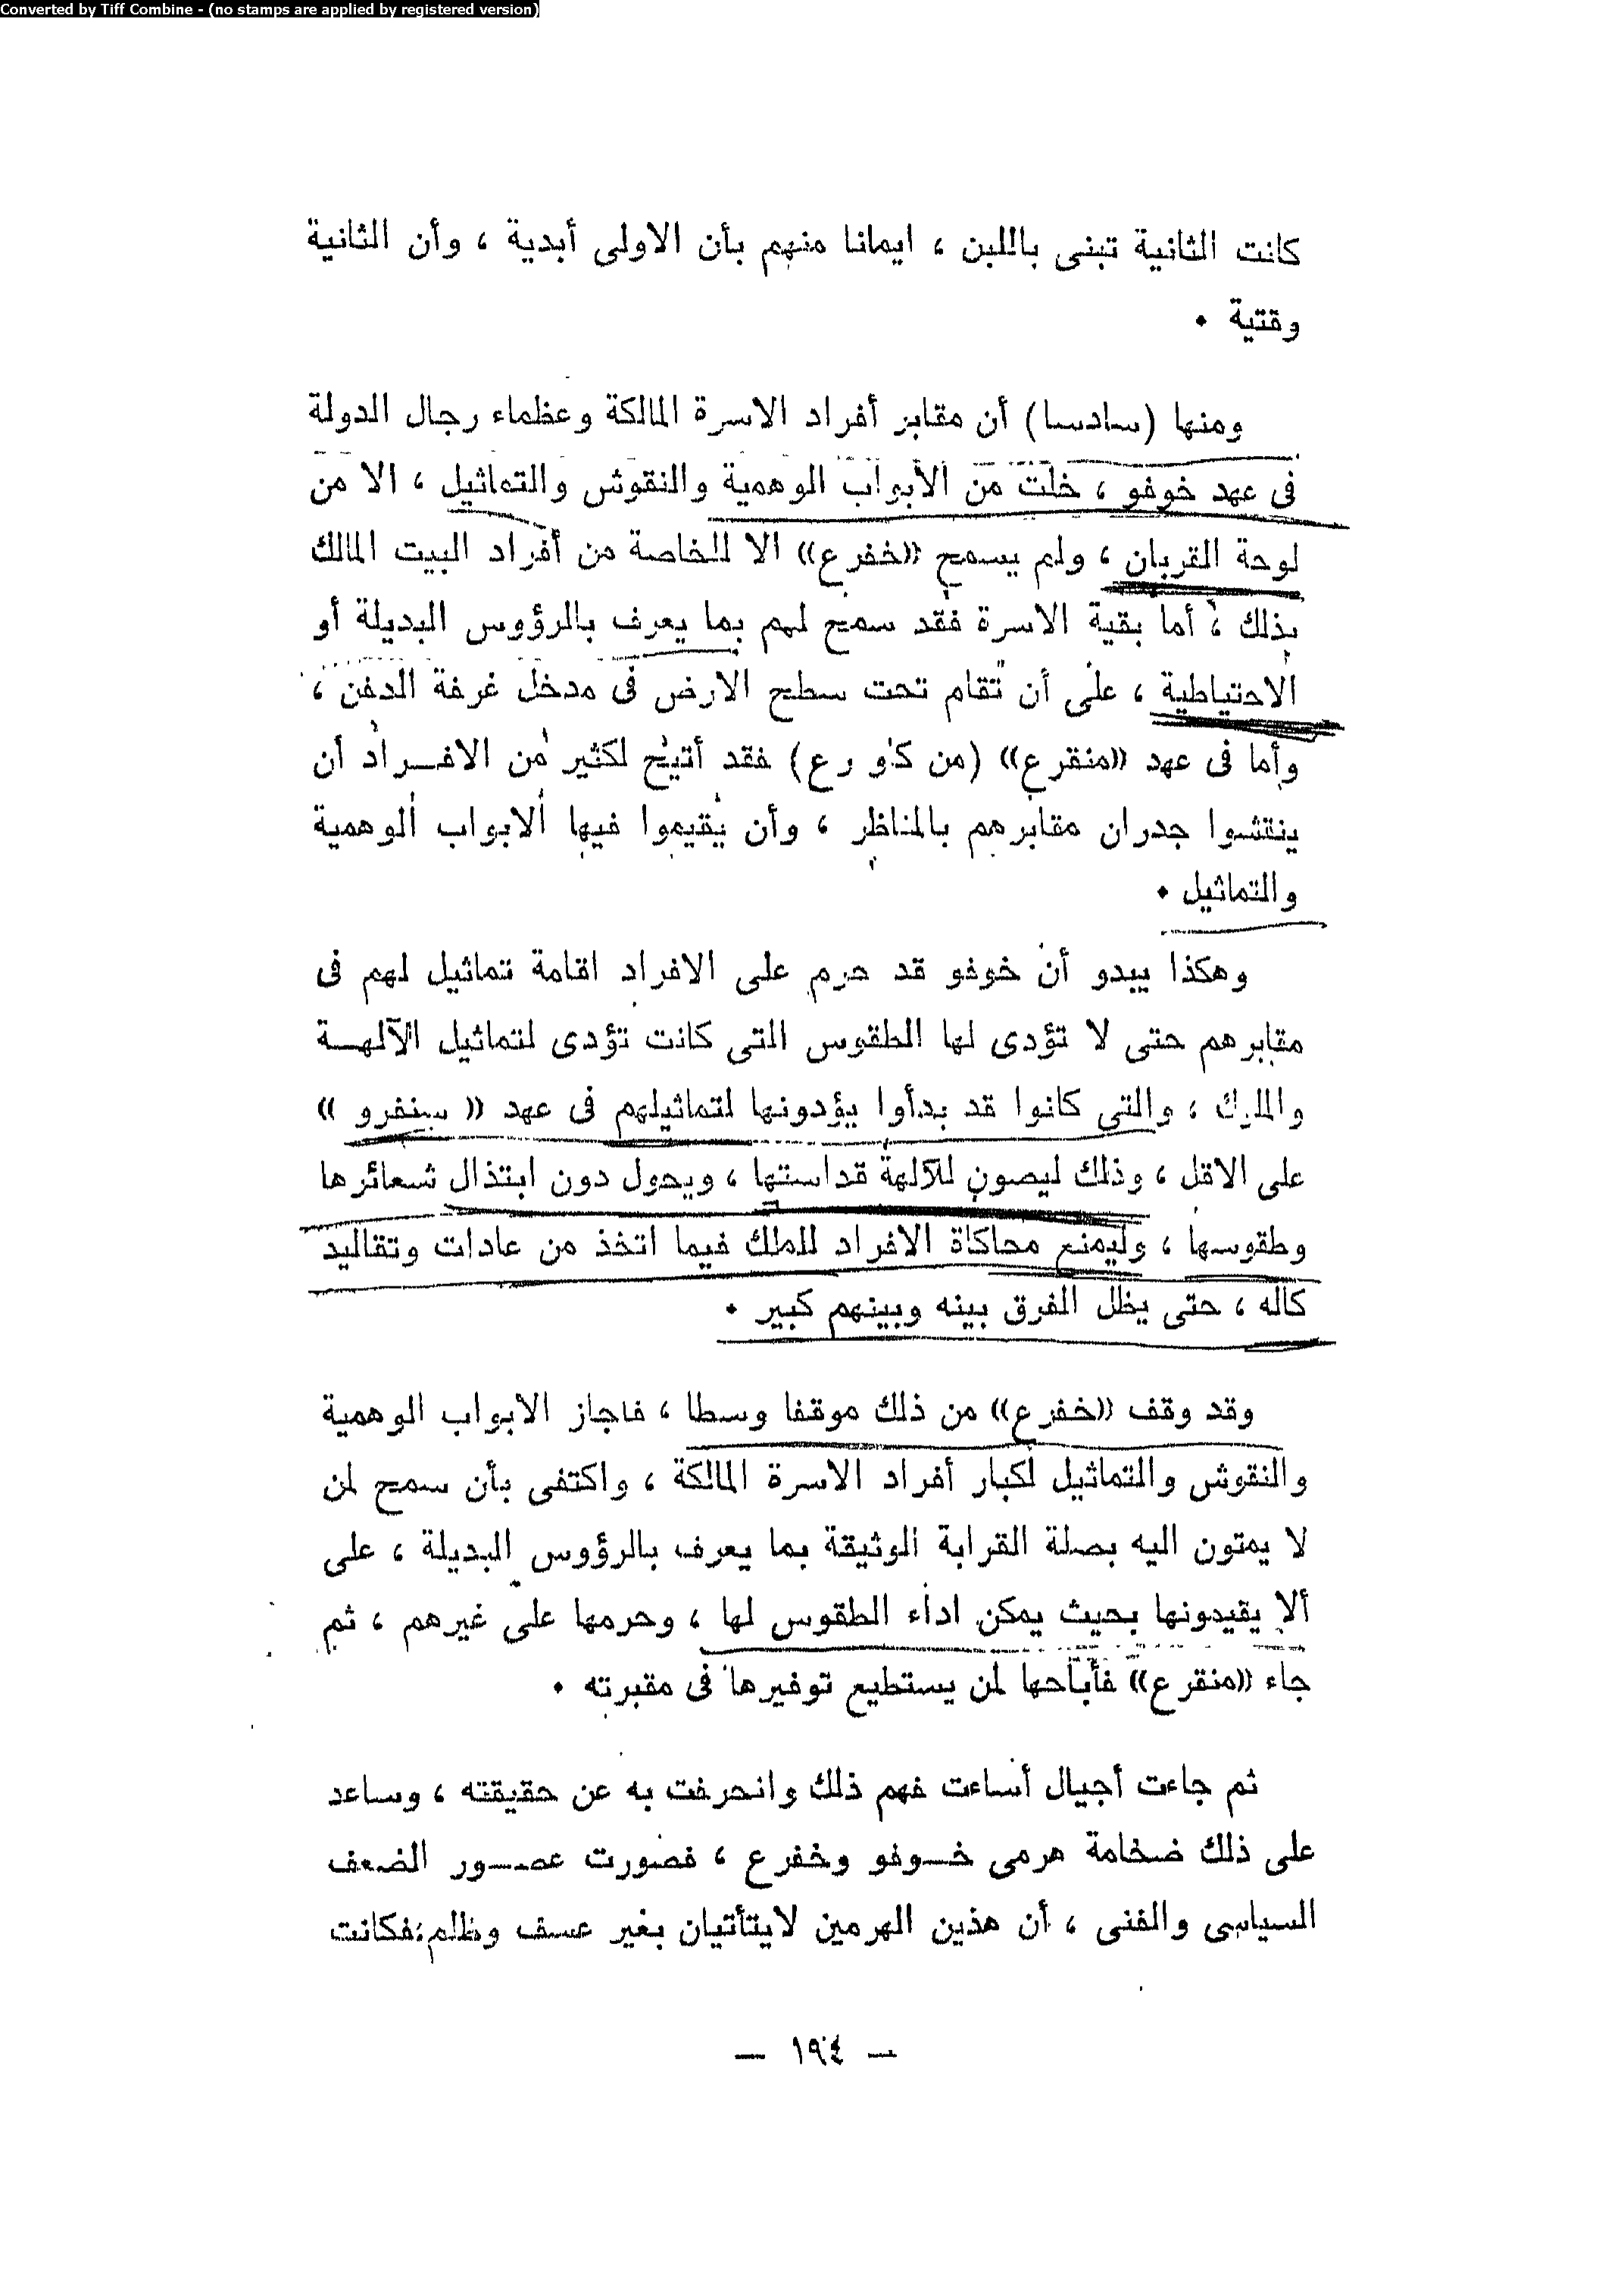 Converted by Tiff Combine - (no stamps are applied by registered version)
كانت الثانية تبنى باللبن ، ايمانا منهم بأن الاولى أبدية ، وأن الثانية
وقتية .
ومنها (سادسا) أن مقابر أفراد الاسرة المالكة وعظماء رجال الدولة
فى عهد خوفو ، خلت من الأبواب الوهمية والنقوش والتماثيل ، الا من
لوحة القربان ، ولم يسمح «خفرع» الا للخاصة من أفراد البيت المالك
بذلك ، أما بقية الاسرة فقد سمح لهم بما يعرف بالرؤوس البديلة أو
الاحتياطية ، على أن تقام تحت سطح الارض فى مدخل غرفة الدفن ،
وأما فى عهد «منقرع» (من كاو رع) فقد أتيح لكثير من الافراد أن
ينقشوا جدران مقابرهم بالمناظر ، وأن يقيموا فيها الابواب الوهمية
والتماثيل .
وهكذا يبدو أن خوفو قد حرم على الافراد اقامة تماثيل لهم فى
مقابرهم حتى لا تؤدى لها الطقوس التى كانت تؤدى لتماثيل الآلهة
والملوك ، والتى كانوا قد بدأوا يؤدونها لتماثيلهم فى عهد « سنفرو »
على الاقل ، وذلك ليصون للآلهة قداستها ، ويحول دون ابتذال شعائرها
وطقوسها ، وليمنع محاكاة الافراد للملك فيما اتخذ من عادات وتقاليد
كاله ، حتى يظل الفرق بينه وبينهم كبير .
وقد وقف «خفرع» من ذلك موقفا وسطا ، فاجاز الابواب الوهمية
والنقوش والتماثيل لكبار أفراد الاسرة المالكة ، واكتفى بأن سمح لمن
لا يمتون اليه بصلة القرابة الوثيقة بما يعرف بالرؤوس البديلة ، على
ألا يقيدونها بحيث يمكن اداء الطقوس لها ، وحرمها على غيرهم ، ثم
جاء «منقرع» فأباحها لمن يستطيع توفيرها فى مقبرته .
ثم جاءت أجيال أساءت فهم ذلك وانحرفت به عن حقيقته ، وساعد
على ذلك ضخامة هرمى خوفو وخفرع ، فصورت عصور الضعف
السياسى والفنى ، أن هذين الهرمين لايتأتيان بغير عسف وظلم، فكانت
— ١٩٤ —